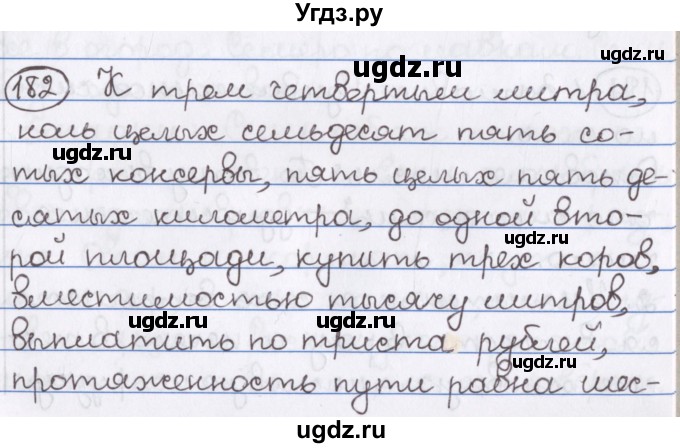 Угдз.ру
182 К трем четвертым литра,
ugdz.ru ugdz.ru
ноль целых семьдесят пять со-
ugdz.ru
тых консервы, пять целых пять де-
сятых километра, до одной вто-
ugdz.ru ugdz.ru
рой площади, купить трех коров,
вместимостью тысячу литров,
ugdz.ru ugdz.ru
выплатить по триста рублей,
протяженность пути равна шес-
ugdz.ru